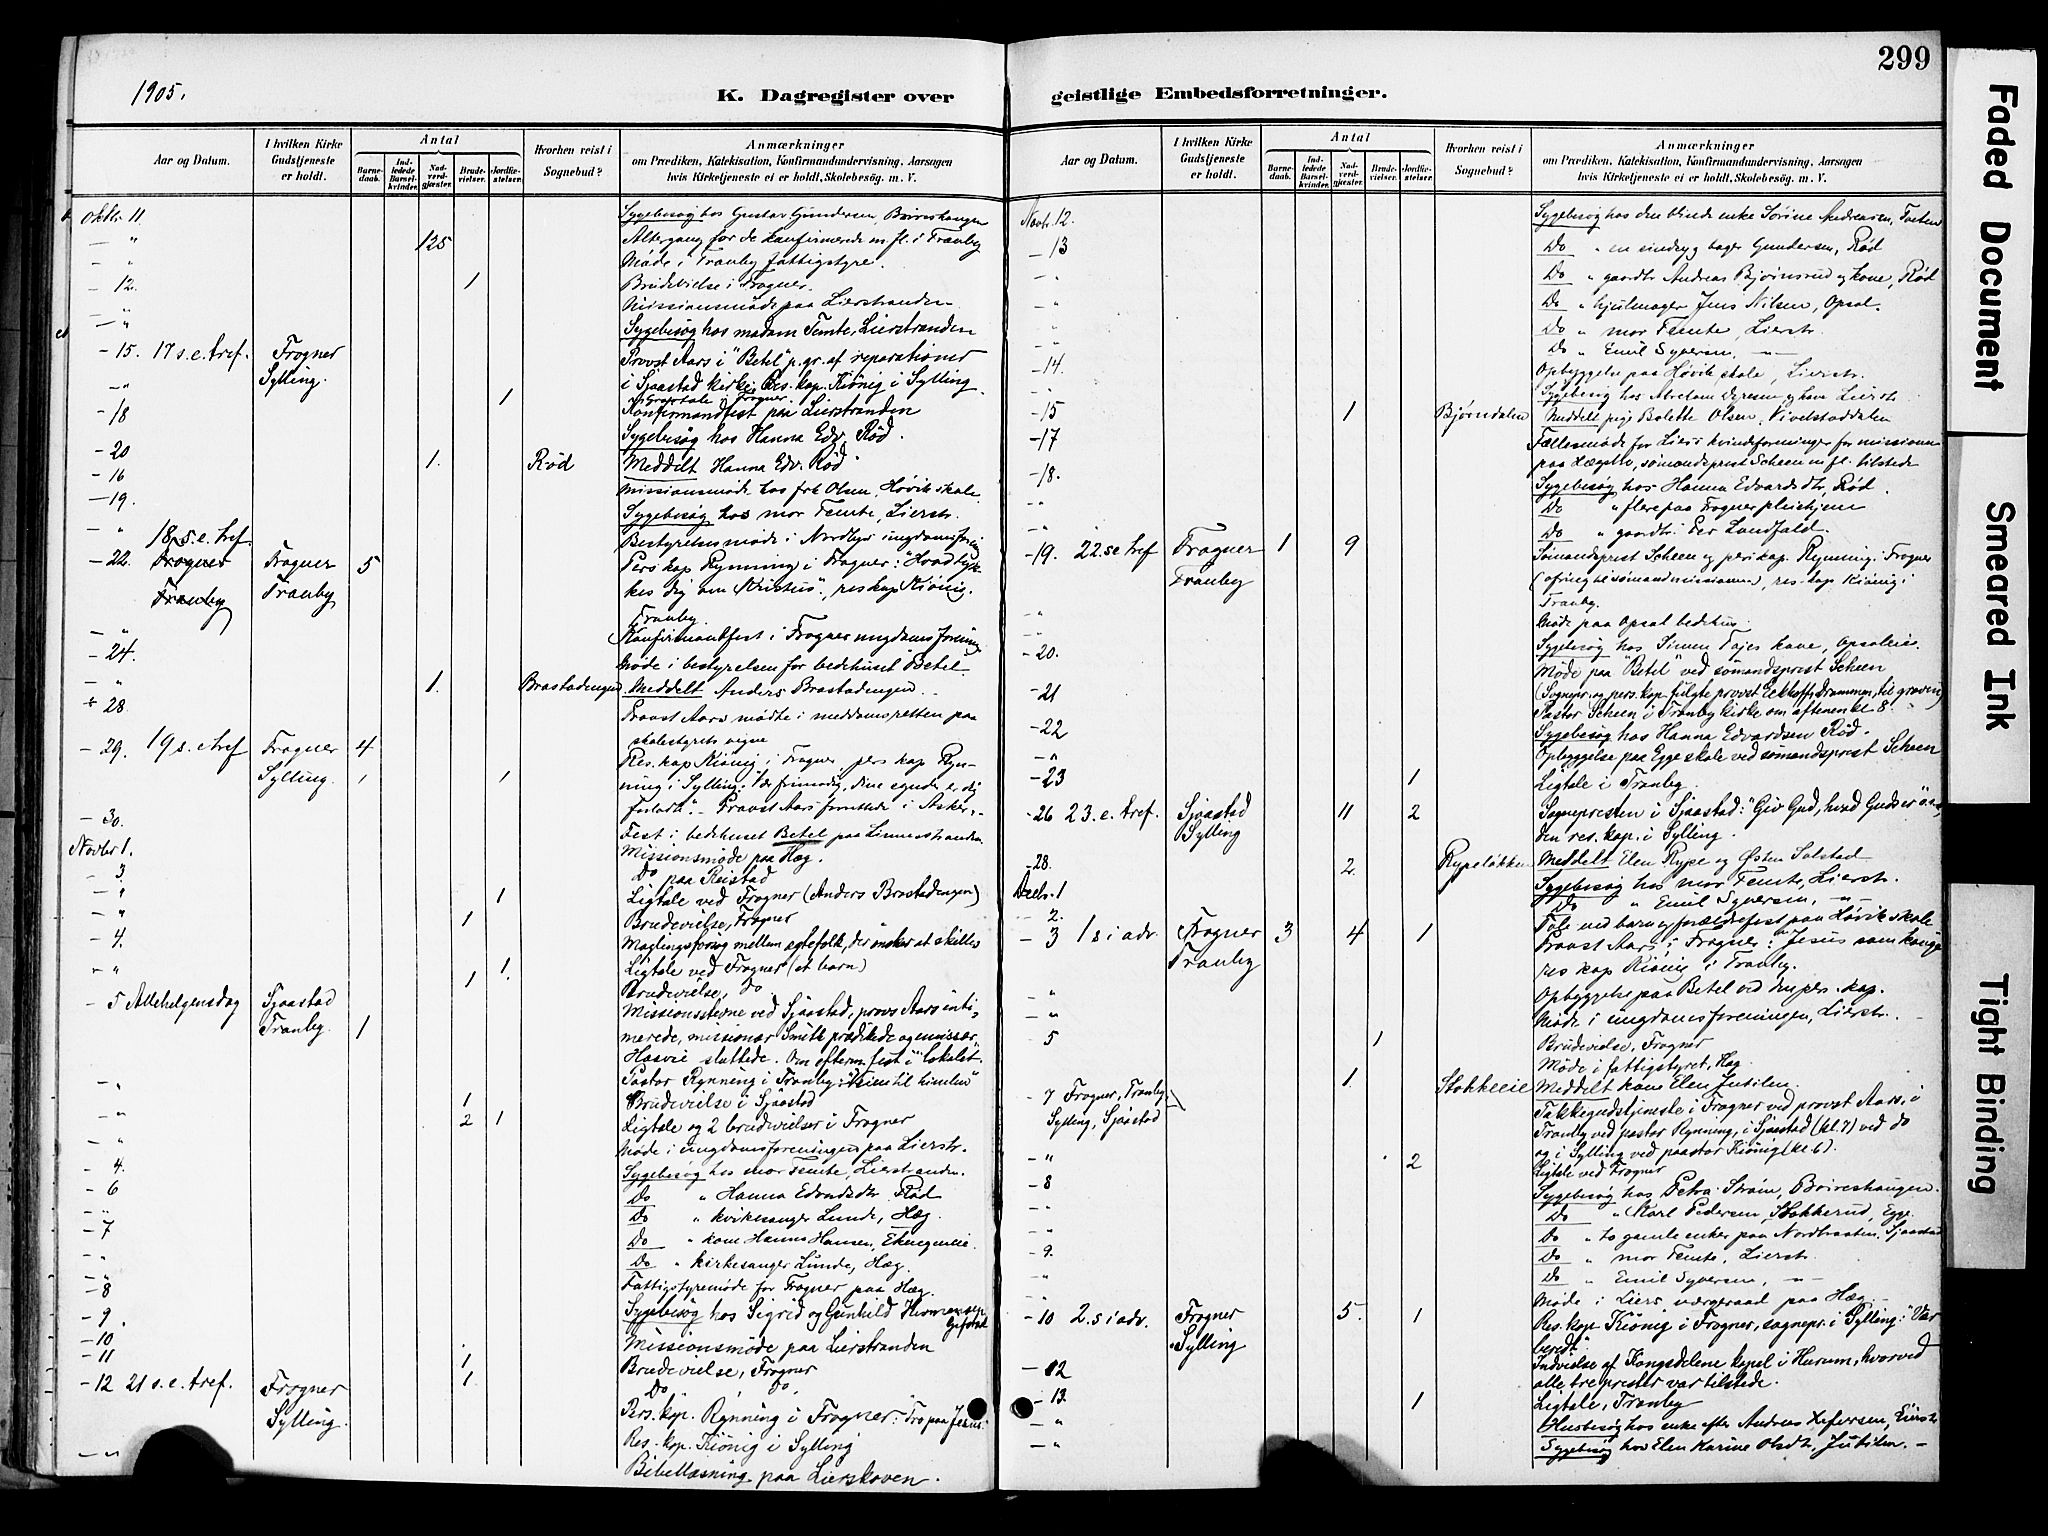 1905.
K. Dagregister over
Aar og Datum.
I hvilken Kirke Gudstjeneste er holdt.
Antal
Barnedaab.
Indledede Barselkvinder.
Nadverdgjæster.
Brudevielser.
Jordfæstelser.
Hvorhen reist i Sognebud?
Anmærkninger
om Prædiken, Katekisation, Konfirmandundervisning, Aarsagen
hvis Kirketjeneste ei er holdt, Skolebesøg. m. V.
Oktbr. 11. Sygebesøg hos Gustav Gundersen, Boireshaugen
— " 125 Altergang for de konfirmerede m. fl. i Tranby
— " Møde i Tranby fattigstyre.
— 12. 1 Brudevielse i Frogner.
— " Missionsmøde paa Lierstranden
— " Sygebesøg hos madam Temte, Lierstranden
— 15. 17 s. e. tref. Frogner Provst Aars i "Betel" p. gr. af reparationer
Sylling. i Sjaastad kirke, Res. kap. Kiönig i Sylling.
— " 1 Gravtale i Frogner.
— 18 Konfirmandfest paa Lierstranden
— 20 Sygebesøg hos Hanna Edv. Rød.
— 16 1. Rød Meddelt Hanna Edv. Rød
— 19. Missionsmøde hos frk Olsen, Høvik skole
— " Sygebesøg hos mor Temte, Lierstr.
18 s. e. tref. Bestyrelsesmøde i Nordlys ungdomsforening
— 22. Frogner Frogner 5 Pers. kap Rynning i Frogner: "Hvad tyk-
Tranby Tranby kes dig om Kristus", res kap Kiönig.
Tranby.
— " (Konfirmantfest i Frogner ungdomsforening)
— 24. Møde i bestyrelsen for bedehuset Betel
— " 1. Brastadengen Meddelt Anders Brastadengen
28. Provst Aars mødte i meddomsretten paa
skolestyrets vegne
— 29. 19 s. e. tref Frogner 4 Res. kap Kiönig i Frogner, pers kap Ryn-
Sylling. 1 1 ning i Sylling: "Vær frimodig, dine synder er dig
forladt". Provst Aars forrettede i Asker.
— 30. Fest i bedehuset Betel paa Linnesstranden
Novbr 1. Missionsmøde paa Hæg.
— 3 Do paa Reistad
— " 1 Ligtale ved Frogner (Anders Brastadengen)
— " 1 Brudevielse, Frogner
— 4. Mæglingsforsøg mellem ægtefolk, der ønsker at skilles
— " 1. Ligtale ved Frogner (et barn)
1 Brudevielse, do
— 5 Allehelgensdag Sjaastad Missionsstevne ved Sjaastad, provst Aars inti-
Tranby. 1 merede, missionær Smith prædikede og
sluttede. Om efterm. fest i "lokalet".
— " Pastor Rynning i Tranby: "Veien til himlen"
1 Brudevielse i Sjaastad
— " 2 1 Ligtale og 2 brudevielser i Frogner
— " Møde i ungdomsforeningen paa Lierstr.
— 4. Sygebesøg hos mor Temte, Lierstranden
— 6 Do " Hanna Edvardsdtr Rød
— " Do " kirkesanger Lunde, Hæg.
— 7 Do " kone Hanna Hansen, Ekengmeie
— " Do " kirkesanger Lunde, Hæg.
— 8 Fattigstyremøde for Frogner paa Hæg.
— 9 Sygebesøg hos Sigrid og Gunhild Hermansen
Gifstad
— 10 Missionsmøde paa Lierstranden
— 11 1 Brudevielse, Frogner
1. Do do.
— 12 21 s. e. tref. Frogner Pers. kap. Rynning i Frogner: "Tro paa Jesus"
Sylling. Res. kap. Kiönig i Sylling
— " Bibellæsning paa Lierskoven.
299
geistlige Embedsforretninger.
Aar og Datum.
I hvilken Kirke Gudstjeneste er holdt.
Antal
Barnedaab.
Indledede Barselkvinder.
Nadverdgjæster.
Brudevielser.
Jordfæstelser.
Hvorhen reist i Sognebud?
Anmærkninger
om Prædiken, Katekisation, Konfirmandundervisning, Aarsagen
hvis Kirketjeneste ei er holdt, Skolebesøg. m. V.
Novbr. 12. Sygebesøg hos den blinde enke Sørine Andreasen, Tveten
— 13 Do " en sindsyg bager Gundersen, Rød
— " Do " gaardbr. Andreas Bjørnsrud og kone, Rød
— " Do " hjulmager Jens Nilsen, Opsal.
— " Do " mor Temte, Lierstr.
— " Do " Emil Syversen, — " —
— 14. Opbyggelse paa Høvik skole, Lierstr.
— " Sygebesøg hos og kone Lierstr
— 15 1 Bjørndalen Meddelt pige Bolette Olsen, Vivelstaddalen
— 17 Fællesmøde for Liers kvindeforeninger for missionen
paa Hægstte, sømandsprest Scheen m. fl. tilstede
— 18. Sygebesøg hos Hanna Edvardsdtr, Rød.
— " Do " flere paa Frogner pleiehjem
— " Do " gaardbr. Per Landfald.
— 19. 22. s. e. tref Frogner 1 9 Sømandsprest Scheen og pers. kap. Rynning i Frogner
Tranby (ofring til sømandsmissionen), res. kap Kiönig i
Tranby.
— " Møde paa Opsal bedehus.
— " Sygebesøg hos Simen kone, Opsaleie.
— 20. Møde paa "Betel" ved sømandsprest Scheen
— 21 (Sognepr. og pers. kap. fulgte provst Eckhoff, Drammen, til graven)
Pastor Scheen i Tranby kirke om aftenen kl 8.
— 22 Sygebesøg hos Hanna Edvardsen Rød.
— " Opbyggelse paa Egge skole ved sømandsprest Scheen
— 23 1 Ligtale i Tranby.
— 26 23. e. tref. Sjaastad 11 2 Sognepresten i Sjaastad: "Giv Gud, hvad Guds er"
Sylling den res. kap. i Sylling.
— 28. 2. Rypeløkken Meddelt Elen Rype og Østen Solstad
Decbr. 1 Sygebesøg hos mor Temte, Lierstr.
Do " Emil Syversen, — " —
— 2. Tale ved barn og forældrefest paa Høvik skole
— 3 1 s i adv. Frogner 3 4 1 Provst Aars i Frogner: "Jesus som konge"
Tranby res kap Kiönig i Tranby.
— " Opbyggelse paa Betel ved den pers. kap.
— " Møde i ungdomsforeningen, Lierstr.
— 5 1 Brudevielse, Frogner
Møde i fattigstyret, Hæg
1. Stokkeeie Meddelt kone Elen Jutilen.
— 7 Frogner, Tranby, Takkegudstjeneste i Frogner ved provst Aars, i
Sylling, Sjåstad Tranby ved pastor Rynning, i Sjaastad (kl. 7) ved do
og i Sylling ved paastor Kiönig (kl 6).
— " 2 Ligtale ved Frogner
— 8 Sygebesøg hos Petra Strøm, Boireshaugen.
— " Do " Karl Pedersen, Stokkerud, Egge.
— " Do " to gamle enker paa Nordbraaten, Sjaastad
— 9. Do " mor Temte, Lierstr.
— " Do " Emil Syversen, — " —
— " Møde i Liers værgeraad paa Hæg.
— 10 2. s i adv. Frogner 5. 1 Res. kap Kiönig i Frogner, sognepr. i Sylling: "Vær
Sylling beredt".
— 12 Indvielse af Kongsdelene kapel i Hurum, hvorved
alle tre prester var tilstede.
— 13. 1 Ligtale, Tranby
— " Husbesøg hos enke efter Andreas Lierstr
— " Sygebesøg hos Elen Karine Olsdtr, Jutilen.
Faded Document
Smeared Ink
Tight Binding